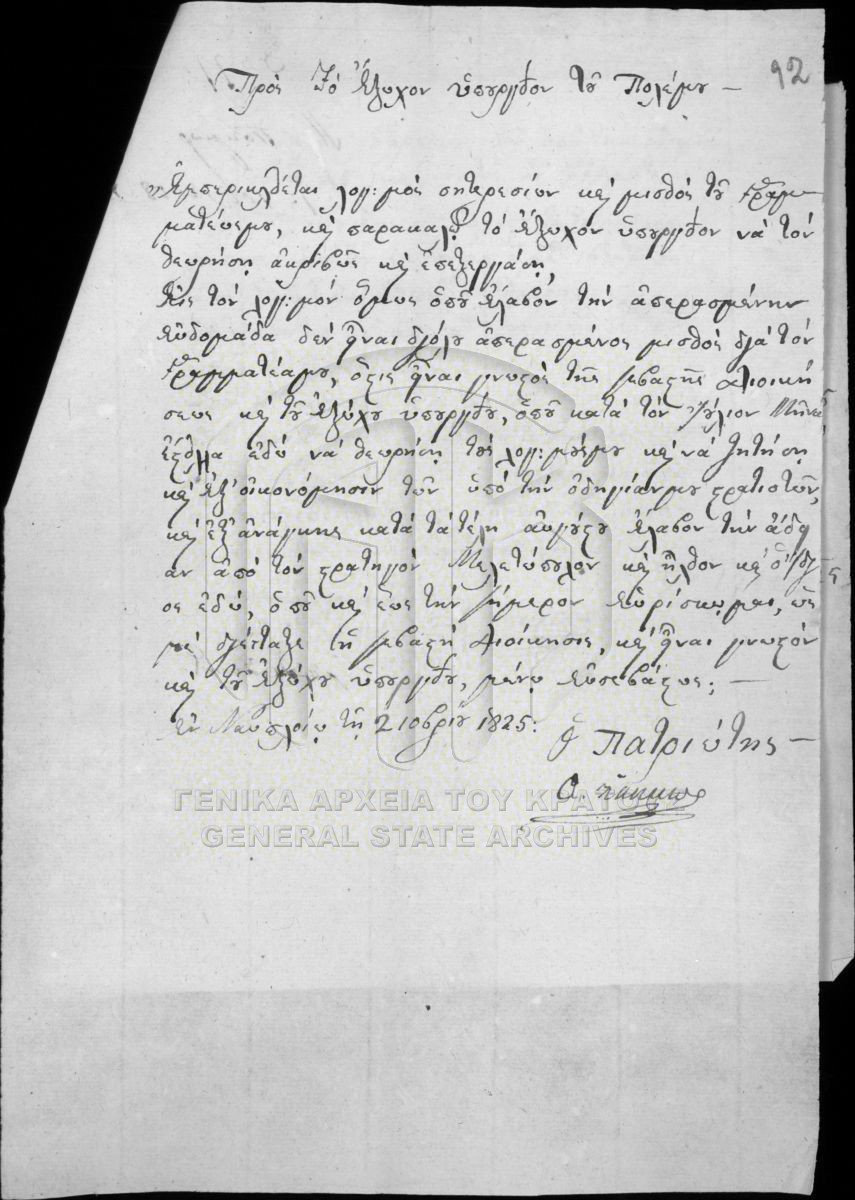 92
Πρὸς Τὸ Ἔξοχον ὑπουργεῖον τοῦ Πολέμου —
Ἐμπερικλείεται λογ:μὸς σητερεσίων καὶ μισθὸς τοῦ Γραμ-
ματέωςμου, καὶ παρακαλῶ τὸ ἔξοχον ὑπουργεῖον νὰ τὸν
θεωρήσῃ ἀκριβῶς καὶ ἐπεξεργάσῃ,
Εἰς τὸν λογ:μὸν ὅμως ὁποῦ ἔλαβον τὴν ἀπερασμένην
εὐδομάδα δὲν εἶναι διόλου ἀπερασμένος μισθὸς διὰ τὸν
Γραμματέαμου, ὅστις εἶναι γνωστὸς τῆς σεβαστῆς διοική
σεως καὶ τοῦ ἐξόχου ὑπουργείου, ὁποῦ κατὰ τὸν Ἰούλιον Μῆνα
ἐστάλθη ἐδῶ νὰ θεωρήσῃ τοὺς λογ:μούςμου καὶ νὰ ζητήσῃ
καὶ ἐξ' οἰκονόμησιν τῶν ὑπὸ τὴν ὁδηγίανμου στρατιωτῶν,
καὶ ἐξ' ἀνάγκης κατὰ τὰ τέλη αὐγούστου ἔλαβον τὴν ἄδει
αν ἀπὸ τὸν στρατηγὸν Μελετόπουλον καὶ ἦλθον καὶ ὁ ἴδι
ος ἐδῶ, ὁποῦ καὶ ἕως τὴν σήμερον εὑρίσκομαι, ὡς
μὲ διέταξε ἡ σεβαστὴ Διοίκησις, καὶ εἶναι γνωστὸν
καὶ τοῦ ἐξόχου ὑπουργείου, μένω εὐσεβάστως: —
Ἐν Ναυπλίῳ τῇ 2 1οβρίου 1825:
ὁ Πατριώτης —
ΓΕΝΙΚΑ ΑΡΧΕΙΑ ΤΟΥ ΚΡΑΤΟΥΣ
GENERAL STATE ARCHIVES